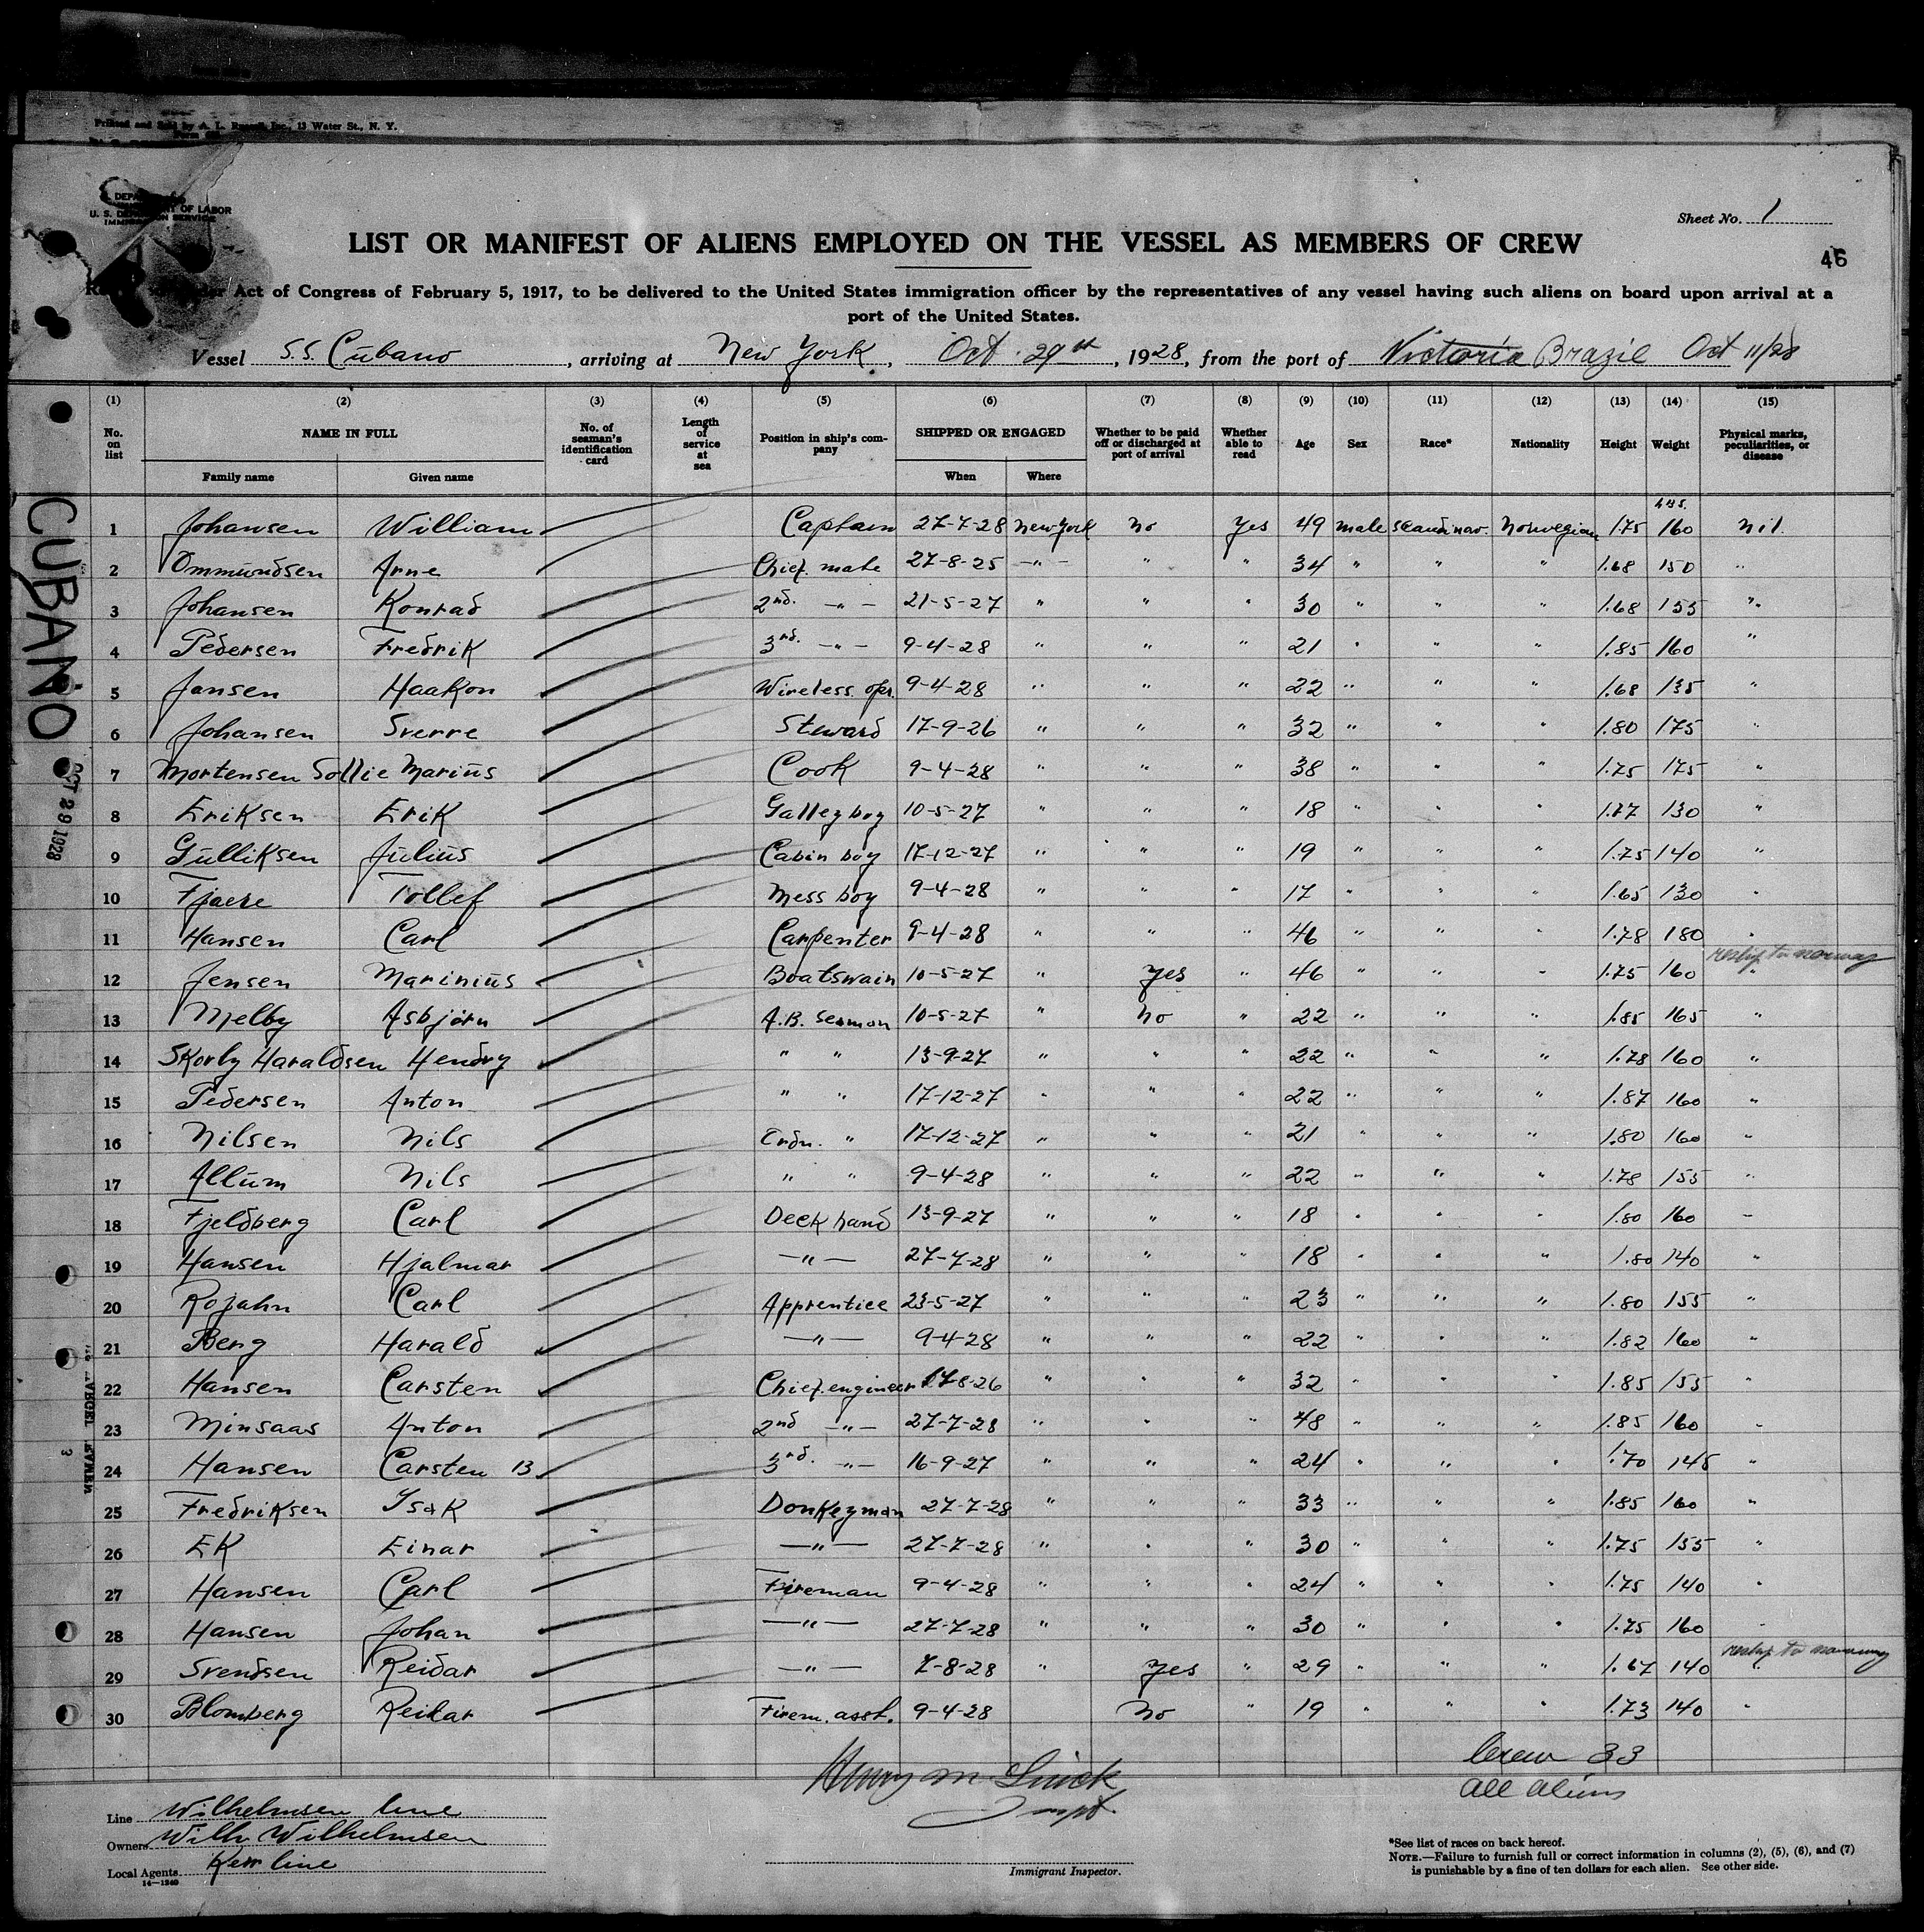 Printed and Sold by A. L. Russell, Inc., 13 Water St., N. Y.
U. S. DEPARTMENT OF LABOR
IMMIGRATION SERVICE
Sheet No. 1
LIST OR MANIFEST OF ALIENS EMPLOYED ON THE VESSEL AS MEMBERS OF CREW
46
Act of Congress of February 5, 1917, to be delivered to the United States immigration officer by the representatives of any vessel having such aliens on board upon arrival at a
port of the United States.
Vessel S.S. Cubano, arriving at New York, Oct. 29th, 1928, from the port of Victoria Brazil Oct 11/28
(1) (2) (3) (4) (5) (6) (7) (8) (9) (10) (11) (12) (13) (14) (15)
No. on list NAME IN FULL Family name Given name No. of seaman's identification card Length of service at sea Position in ship's company SHIPPED OR ENGAGED When Where Whether to be paid off or discharged at port of arrival Whether able to read Age Sex Race* Nationality Height Weight Physical marks, peculiarities, or disease
lbs.
1 Johansen William Captain 27-7-28 New York No Yes 49 male Scandinav. Norwegian 1.75 160 nil.
2 Ommundsen Arne Chief mate 27-8-25 —"— " " 34 " " " 1.68 150 "
3 Johansen Konrad 2nd. —"— 21-5-27 " " " 30 " " " 1.68 155 "
4 Pedersen Fredrik 3rd. —"— 9-4-28 " " " 21 " " " 1.85 160 "
5 Jansen Haakon Wireless opr. 9-4-28 " " " 22 " " " 1.68 135 "
6 Johansen Sverre Steward 17-9-26 " " " 32 " " " 1.80 175 "
7 Mortensen Sollie Marius Cook 9-4-28 " " " 38 " " " 1.75 175 "
8 Eriksen Erik Galley boy 10-5-27 " " " 18 " " " 1.77 130 "
9 Gulliksen Julius Cabin boy 17-12-27 " " " 19 " " " 1.75 140 "
10 Fjaere Tollef Mess boy 9-4-28 " " " 17 " " " 1.65 130 "
11 Hansen Carl Carpenter 9-4-28 " " " 46 " " " 1.78 180 "
reship to norway
12 Jensen Marinius Boatswain 10-5-27 " Yes " 46 " " " 1.75 160 "
13 Melby Asbjørn A.B. Seaman 10-5-27 " No " 22 " " " 1.85 165 "
14 Skorby Haraldsen Hendry " " 13-9-27 " " " 22 " " " 1.78 160 "
15 Pedersen Anton " " 17-12-27 " " " 22 " " " 1.87 160 "
16 Nilsen Nils Ordn. " 17-12-27 " " " 21 " " " 1.80 160 "
17 Allum Nils " " 9-4-28 " " " 22 " " " 1.78 155 "
18 Fjeldberg Carl Deck hand 13-9-27 " " " 18 " " " 1.80 160 "
19 Hansen Hjalmar —"— 27-7-28 " " " 18 " " " 1.80 140 "
20 Rojahn Carl Apprentice 23-5-27 " " " 23 " " " 1.80 155 "
21 Berg Harald —"— 9-4-28 " " " 22 " " " 1.82 160 "
22 Hansen Carsten Chief engineer 17-8-26 " " " 32 " " " 1.85 155 "
23 Minsaas Anton 2nd —"— 27-7-28 " " " 48 " " " 1.85 160 "
24 Hansen Carsten B. 3rd. —"— 16-9-27 " " " 24 " " " 1.70 145 "
25 Fredriksen Isak Donkeyman 27-7-28 " " " 33 " " " 1.85 160 "
26 Ek Einar —"— 27-7-28 " " " 30 " " " 1.75 155 "
27 Hansen Carl Fireman 9-4-28 " " " 24 " " " 1.75 140 "
28 Hansen Johan —"— 27-7-28 " " " 30 " " " 1.75 160 "
reship to norway
29 Svendsen Reidar —"— 7-8-28 " Yes " 29 " " " 1.67 140 "
30 Blomberg Reidar Firem. asst. 9-4-28 No " 19 " " " 1.73 140 "
Crew 33
all aliens
CUBANO
OCT 29 1928
Line Wilhelmsen line
Owners Wilh. Wilhelmsen
Local Agents Kerr line
14—1240
Immigrant Inspector.
*See list of races on back hereof.
NOTE.—Failure to furnish full or correct information in columns (2), (5), (6), and (7)
is punishable by a fine of ten dollars for each alien. See other side.